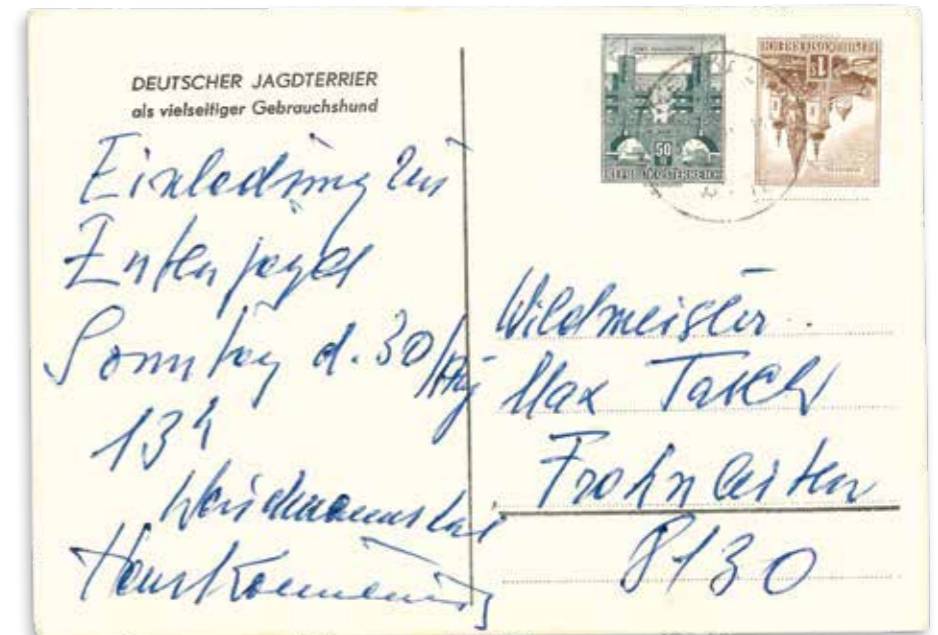 DEUTSCHER JAGDTERRIER
als vielseitiger Gebrauchshund
Einladung zur
Entenjagd
Sonntag d. 30/Aug
13 h
Weidmannsheil
Hans
50
REPUBLIK ÖSTERREICH
S 1
REPUBLIK ÖSTERREICH
Wildmeister
Max
Frohnleiten
8130